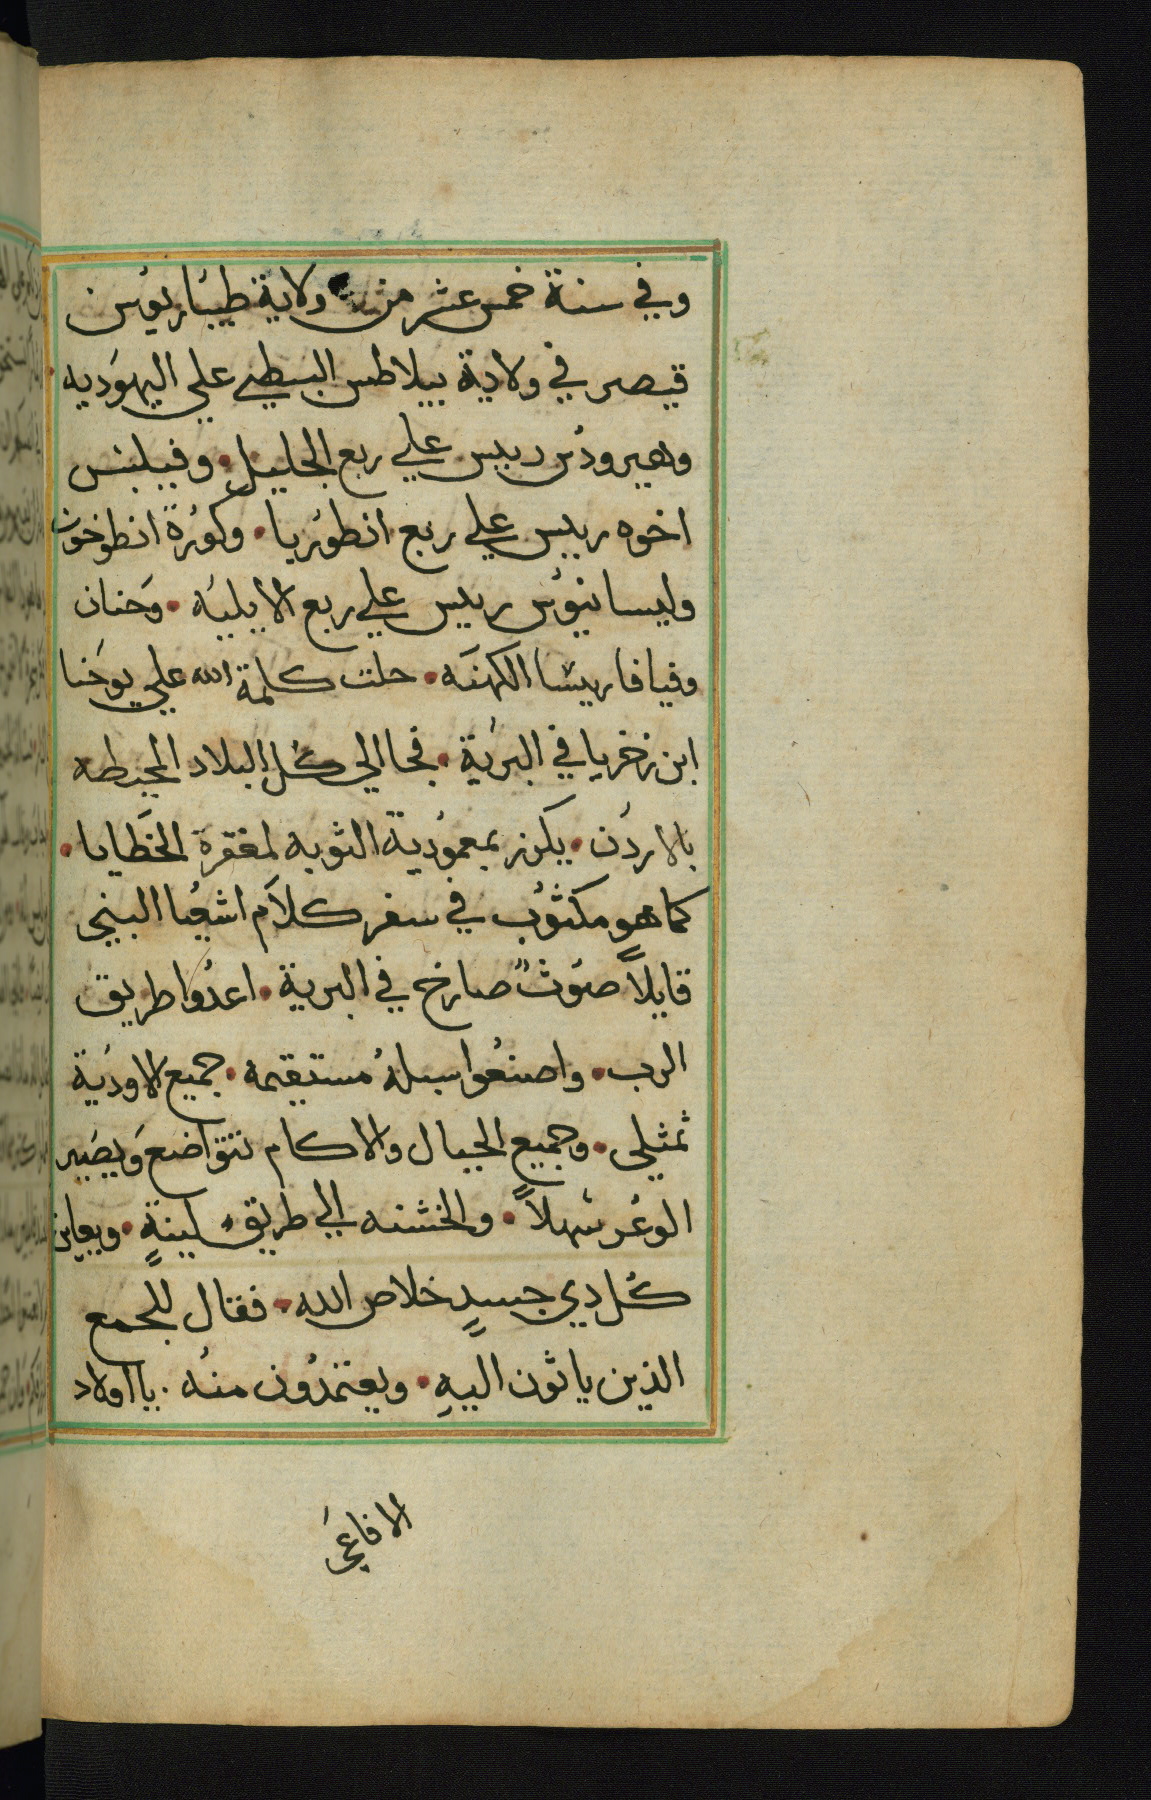 وفي سنة خمس عشر من ولاية طيباريوس
قيصر في ولاية بيلاطس البنطي علي اليهوديه
وهيرودس رييس علي ربع الجليل • وفيلبس
اخوه رييس علي ربع انطوريا • وكورة انطوخون
وليسانيوس رييس علي ربع الابيليه • وحنان
وقيافا ريسا الكهنه • حلت كلمة الله علي يوحنا
ابن زخريا في البرية • فجا الي كل البلاد المحيطه
بالاردن • يكرز بمعمودية الثوبه لمغفرة الخطايا •
كما هو مكثوب في سفر كلام اشعيا النبي
قايلاً صوثٌ صارخ في البرية • اعدوا طريق
الرب • واصنعوا سبلهُ مستقيمه • جميع الاودية
تمثلي • وجميع الجبال والاكام تتواضع ويصير
الوعر سهلاً • والخشنه الي طريق لينةٍ • ويعاين
كل دي جسدٍ خلاص الله • فقال للجمع
الذين ياثون اليهِ • ويعتمدون منهُ • يا اولاد
الافاعي